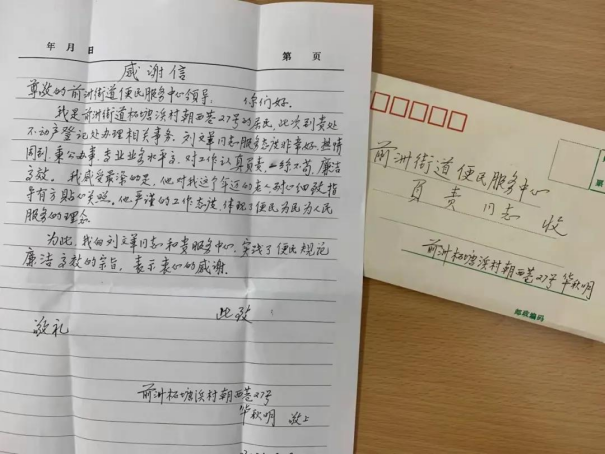 年 月 日
第 页
感谢信
尊敬的前洲街道便民服务中心领导: 你们好。
我是前洲街道柘塘浜村朝西巷27号的居民,此次到贵处
不动产登记处办理相关事务,刘文军同志服务态度非常好,热情
周到,秉公办事,专业业务水平高,对工作认真负责,一丝不苟,廉洁
高效。我感受最深的是,他对我这个年迈的老人耐心细致指
导有方贴心关照。他严谨的工作态度,体现了便民为民为人民
服务的理念
为此,我向刘文军同志和贵服务中心,实践了便民规范
廉洁高效的宗旨,表示衷心的感谢。
此致
敬礼
前洲柘塘浜村朝西巷27号
华秋明 敬上
前洲街道便民服务中心
负责同志 收
前洲柘塘浜村朝西巷27号 华秋明
邮政编码